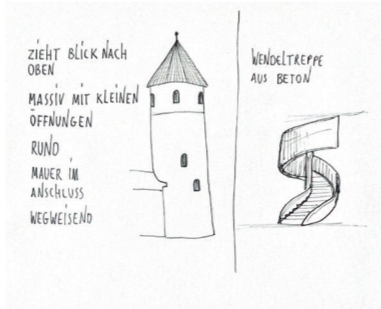 ZIEHT BLICK NACH
OBEN
MASSIV MIT KLEINEN
ÖFFNUNGEN
RUND
MAUER IM
ANSCHLUSS
WEGWEISEND
WENDELTREPPE
AUS BETON